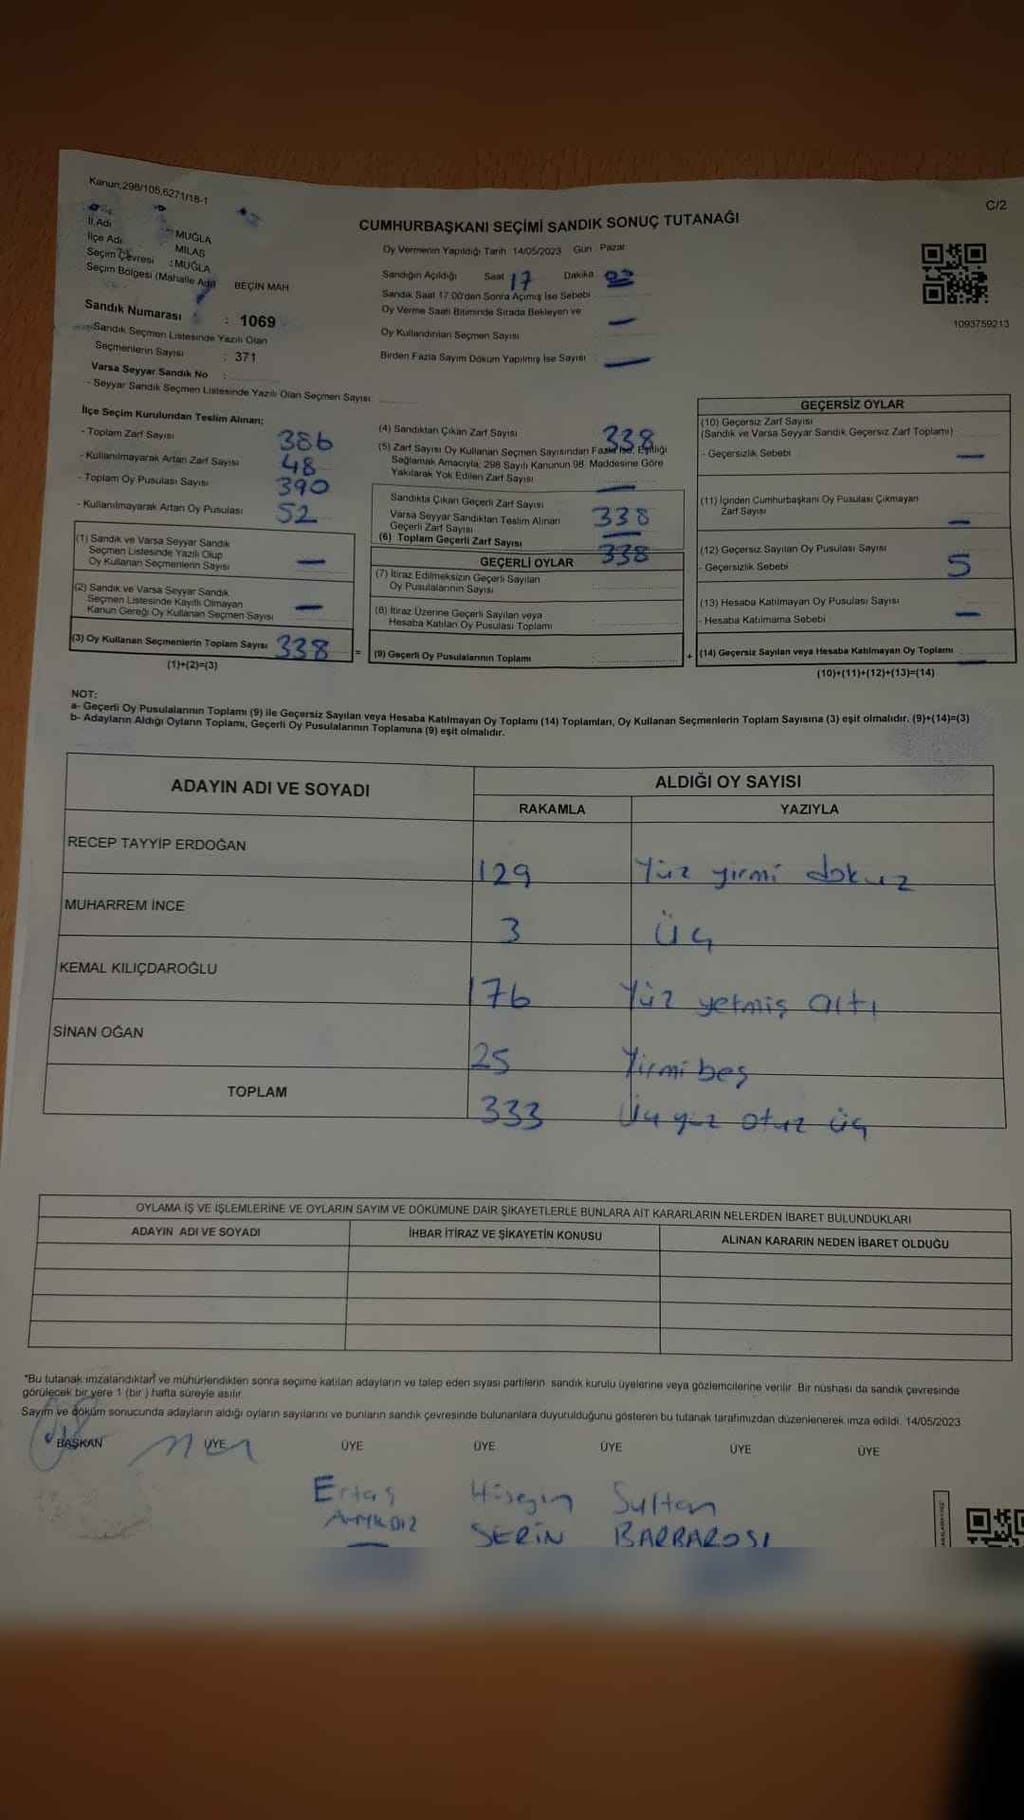 Kanun;298/105,6271/18-1
C/2
İl Adı : MUĞLA
İlçe Adı : MİLAS
Seçim Çevresi : MUĞLA
Seçim Bölgesi (Mahalle Adı) BEÇİN MAH
CUMHURBAŞKANI SEÇİMİ SANDIK SONUÇ TUTANAĞI
Oy Vermenin Yapıldığı Tarih 14/05/2023 Gün Pazar
Sandığın Açıldığı Saat 17 Dakika
Sandık Saat 17.00'den Sonra Açımış İse Sebebi
Oy Verme Saati Bitiminde Sırada Bekleyen ve —
Oy Kullandırılan Seçmen Sayısı
Birden Fazla Sayım Döküm Yapılmış İse Sayısı —
1093759213
Sandık Numarası : 1069
Sandık Seçmen Listesinde Yazılı Olan
Seçmenlerin Sayısı : 371
Varsa Seyyar Sandık No :
- Seyyar Sandık Seçmen Listesinde Yazılı Olan Seçmen Sayısı
İlçe Seçim Kurulundan Teslim Alınan;
- Toplam Zarf Sayısı 386
- Kullanılmayarak Artan Zarf Sayısı 48
- Toplam Oy Pusulası Sayısı 390
- Kullanılmayarak Artan Oy Pusulası 52
(1) Sandık ve Varsa Seyyar Sandık
Seçmen Listesinde Yazılı Olup
Oy Kullanan Seçmenlerin Sayısı —
(2) Sandık ve Varsa Seyyar Sandık
Seçmen Listesinde Kayıtlı Olmayan
Kanun Gereği Oy Kullanan Seçmen Sayısı —
(3) Oy Kullanan Seçmenlerin Toplam Sayısı 338 =
(1)+(2)=(3)
(4) Sandıktan Çıkan Zarf Sayısı 338
(5) Zarf Sayısı Oy Kullanan Seçmen Sayısından Fazla İse, Eşitliği
Sağlamak Amacıyla, 298 Sayılı Kanunun 98. Maddesine Göre
Yakılarak Yok Edilen Zarf Sayısı —
Sandıkta Çıkan Geçerli Zarf Sayısı 338
Varsa Seyyar Sandıktan Teslim Alınan
Geçerli Zarf Sayısı —
(6) Toplam Geçerli Zarf Sayısı 338
GEÇERLİ OYLAR
(7) İtiraz Edilmeksizin Geçerli Sayılan
Oy Pusulalarının Sayısı
(8) İtiraz Üzerine Geçerli Sayılan veya
Hesaba Katılan Oy Pusulası Toplamı
(9) Geçerli Oy Pusulalarının Toplamı +
GEÇERSİZ OYLAR
(10) Geçersiz Zarf Sayısı
(Sandık ve Varsa Seyyar Sandık Geçersiz Zarf Toplamı)
- Geçersizlik Sebebi —
(11) İçinden Cumhurbaşkanı Oy Pusulası Çıkmayan
Zarf Sayısı —
(12) Geçersiz Sayılan Oy Pusulası Sayısı
- Geçersizlik Sebebi 5
(13) Hesaba Katılmayan Oy Pusulası Sayısı
- Hesaba Katılmama Sebebi —
(14) Geçersiz Sayılan veya Hesaba Katılmayan Oy Toplamı
(10)+(11)+(12)+(13)=(14)
NOT:
a- Geçerli Oy Pusulalarının Toplamı (9) ile Geçersiz Sayılan veya Hesaba Katılmayan Oy Toplamı (14) Toplamları, Oy Kullanan Seçmenlerin Toplam Sayısına (3) eşit olmalıdır. (9)+(14)=(3)
b- Adayların Aldığı Oyların Toplamı, Geçerli Oy Pusulalarının Toplamına (9) eşit olmalıdır.
ADAYIN ADI VE SOYADI
ALDIĞI OY SAYISI
RAKAMLA YAZIYLA
RECEP TAYYİP ERDOĞAN 129 Yüz yirmi dokuz
MUHARREM İNCE 3 üç
KEMAL KILIÇDAROĞLU 176 Yüz yetmiş altı
SİNAN OĞAN 25 Yirmi beş
TOPLAM 333 Üç yüz otuz üç
OYLAMA İŞ VE İŞLEMLERİNE VE OYLARIN SAYIM VE DÖKÜMÜNE DAİR ŞİKAYETLERLE BUNLARA AİT KARARLARIN NELERDEN İBARET BULUNDUKLARI
ADAYIN ADI VE SOYADI İHBAR İTİRAZ VE ŞİKAYETİN KONUSU ALINAN KARARIN NEDEN İBARET OLDUĞU
*Bu tutanak imzalandıktan ve mühürlendikten sonra seçime katılan adayların ve talep eden siyasi partilerin sandık kurulu üyelerine veya gözlemcilerine verilir. Bir nüshası da sandık çevresinde
görülecek bir yere 1 (bir ) hafta süreyle asılır.
Sayım ve döküm sonucunda adayların aldığı oyların sayılarını ve bunların sandık çevresinde bulunanlara duyurulduğunu gösteren bu tutanak tarafımızdan düzenlenerek imza edildi. 14/05/2023
BAŞKAN ÜYE ÜYE ÜYE ÜYE ÜYE ÜYE
Ertaş Hüseyin Sultan
SERİN BARBAROSI